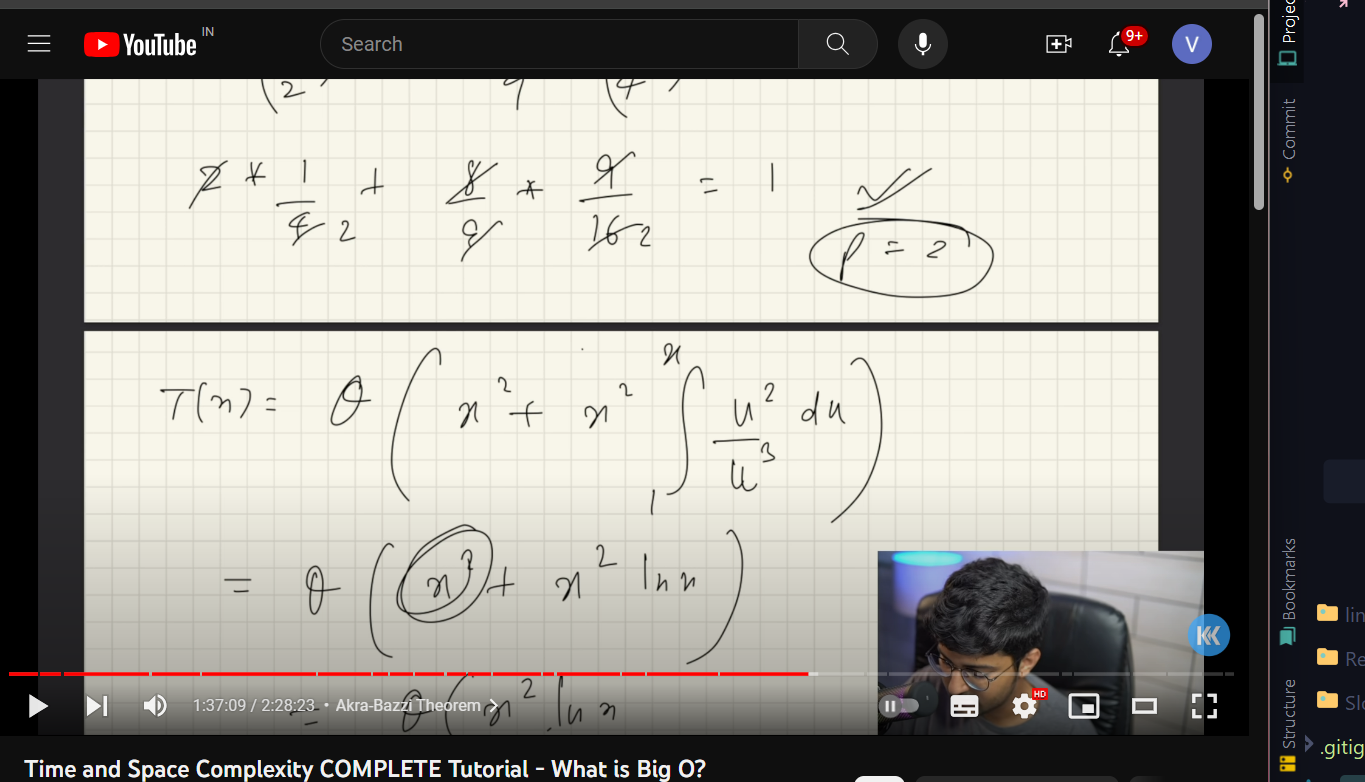 YouTube IN
Search
9+
V
(2 )
9 (4 )
2 * 1/4 2 + 8/9 * 9/16 2 = 1
p = 2
T(x) = θ ( x² + x² ∫₁ˣ u²/u³ du )
= θ ( x² + x² ln x )
= θ ( x² ln x
HD
1:37:09 / 2:28:23 • Akra-Bazzi Theorem
Time and Space Complexity COMPLETE Tutorial - What is Big O?
Projec
Commit
Bookmarks
Structure
lin
Re
.gitig